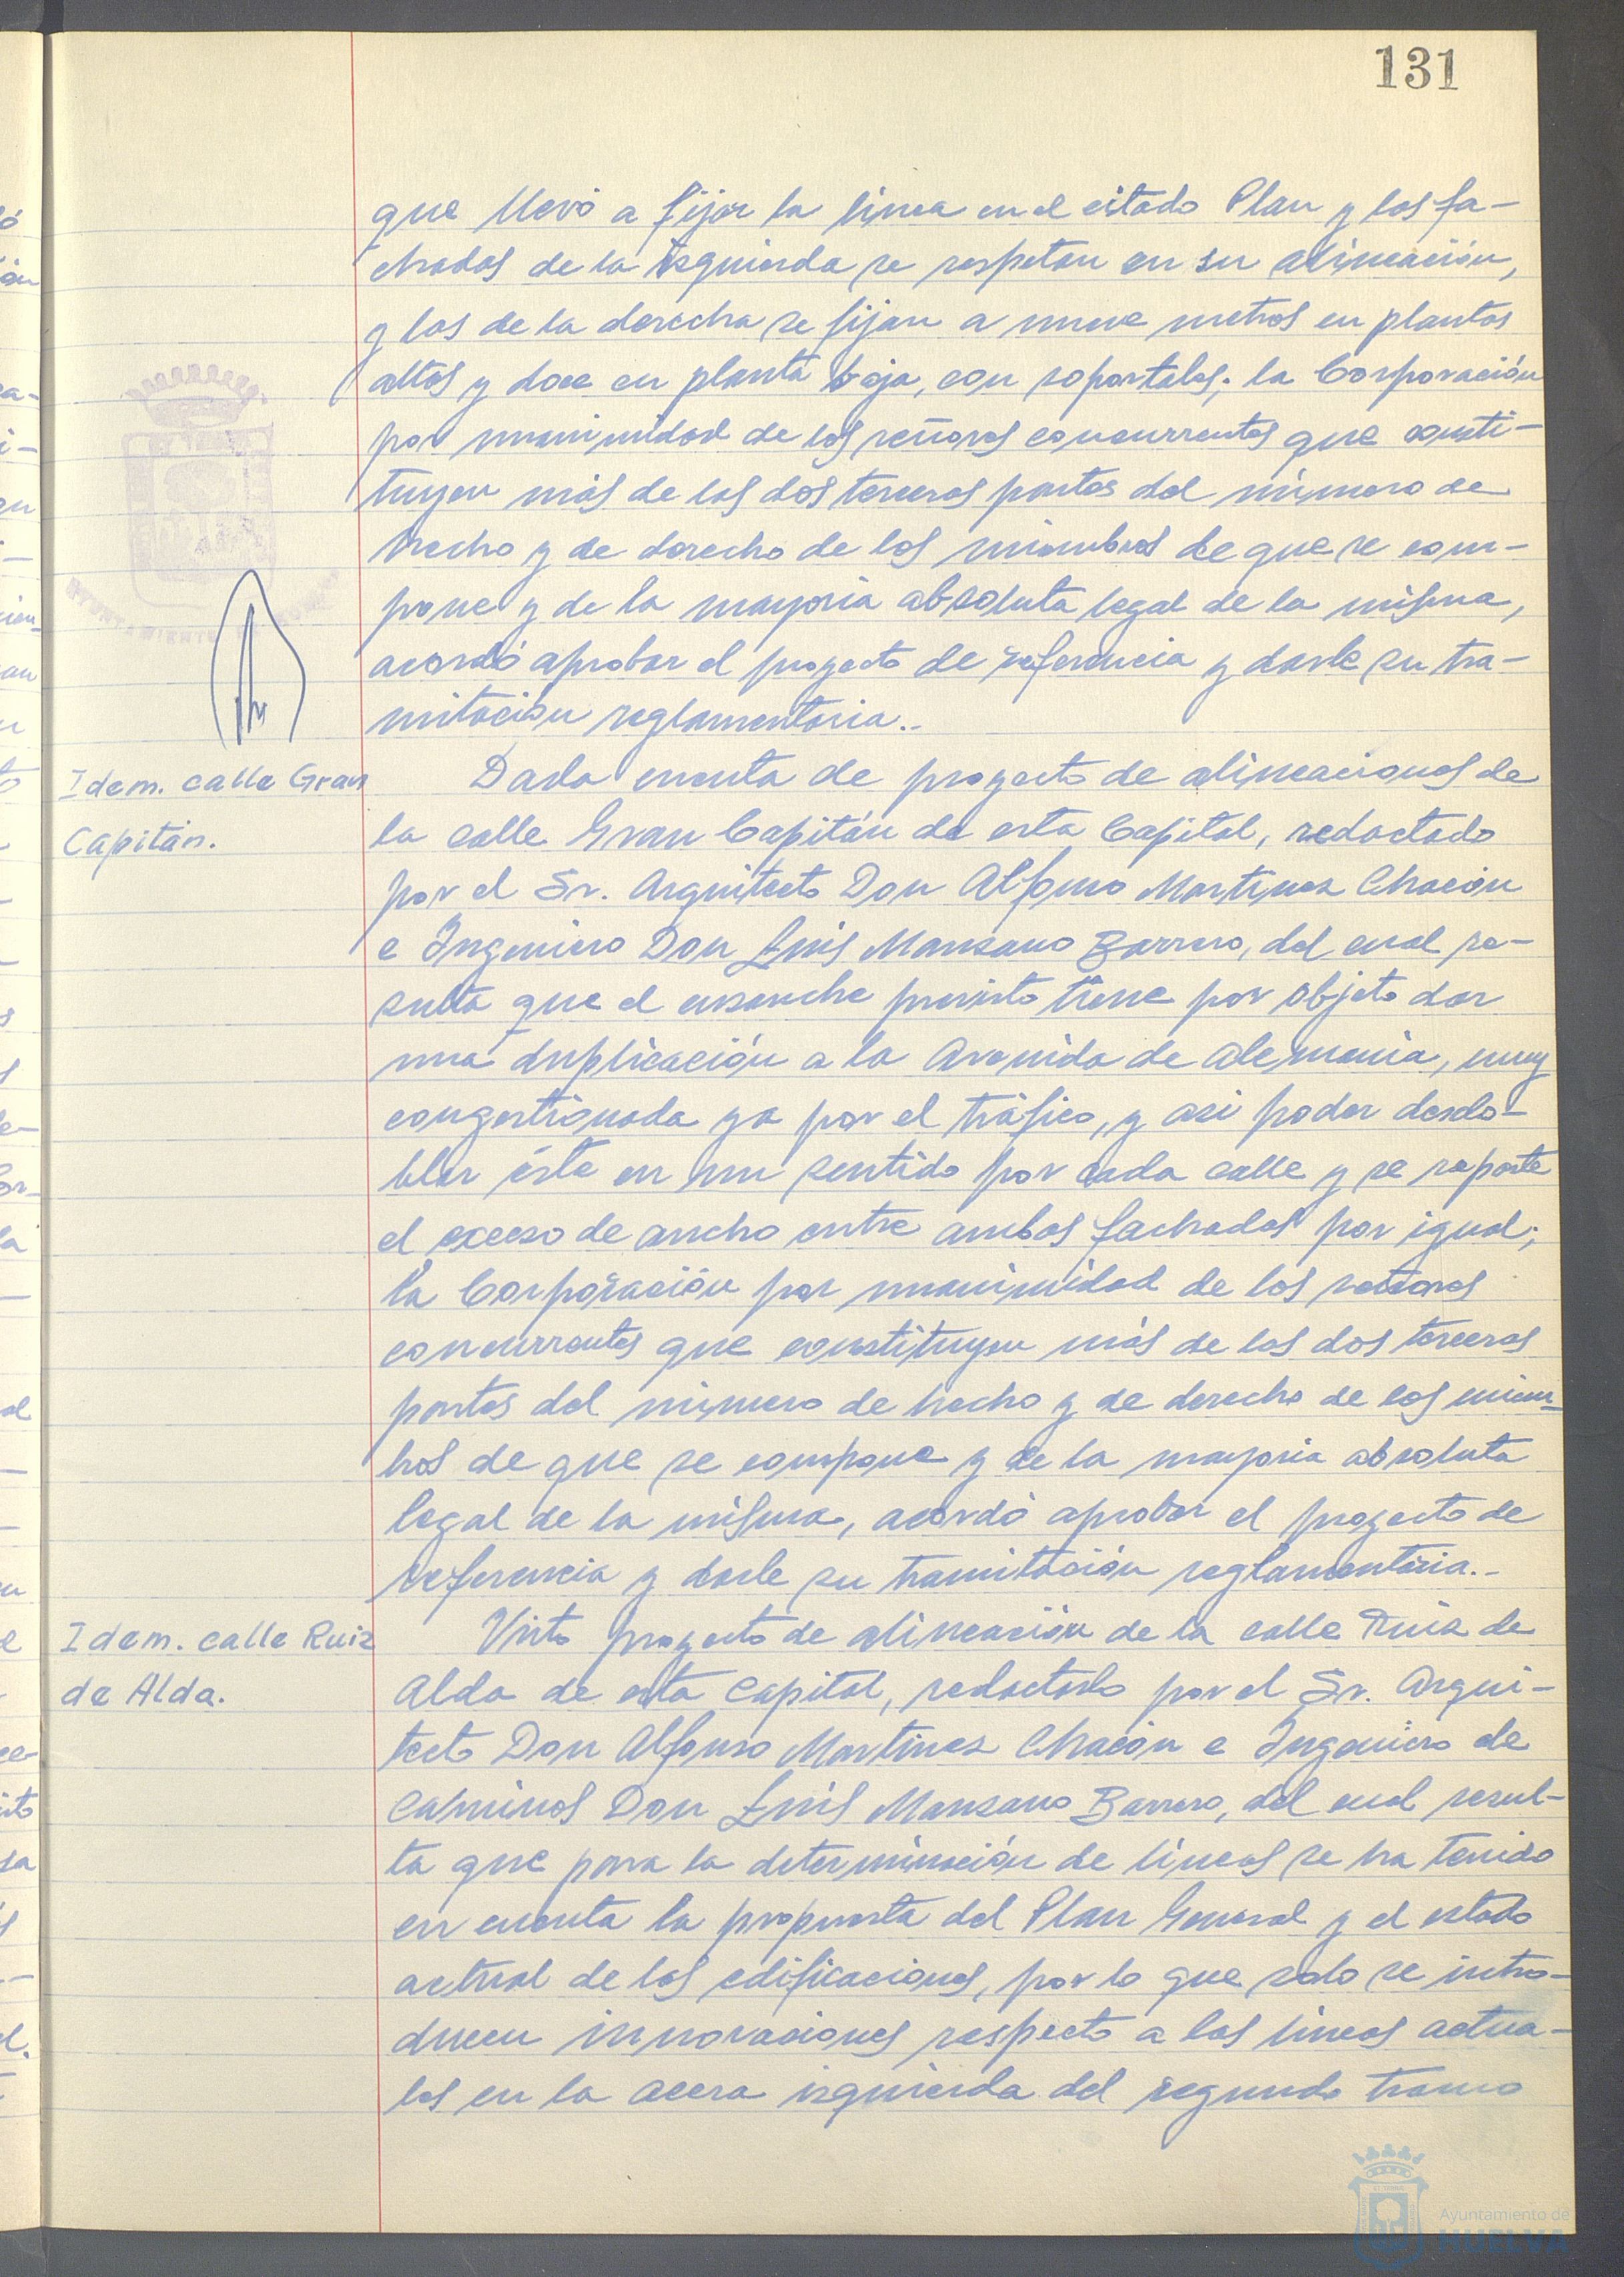 131
que llevó a fijar la línea en el citado Plan y las fa-
chadas de la izquierda se respetan en su alineación,
y las de la derecha se fijan a nueve metros en plantas
altas y doce en planta baja, con soportales; la Corporación
por unanimidad de los señores concurrentes que consti-
tuyen más de las dos terceras partes del número de
hecho y de derecho de los miembros de que se com-
pone y de la mayoría absoluta legal de la misma,
acordó aprobar el proyecto de referencia y darle su tra-
mitación reglamentaria.-
Idem. calle Gran
Capitán.
Dada cuenta de proyecto de alineaciones de
la calle Gran Capitán de esta Capital, redactado
por el Sr. Arquitecto Don Alfonso Martínez Chacón
e Ingeniero Don Luis Manzano Barrero, del cual re-
sulta que el ensanche previsto tiene por objeto dar
una duplicación a la Avenida de Alemania, muy
congestionada ya por el tráfico, y asi poder desdo-
blar éste en un sentido por cada calle y se reparte
el exceso de ancho entre ambas fachadas por igual;
la Corporación por unanimidad de los señores
concurrentes que constituyen más de las dos terceras
partes del número de hecho y de derecho de los miem-
bros de que se compone y de la mayoría absoluta
legal de la misma, acordó aprobar el proyecto de
referencia y darle su tramitación reglamentaria.-
Idem. calle Ruiz
de Alda.
Visto proyecto de alineación de la calle Ruiz de
Alda de esta Capital, redactado por el Sr. Arqui-
tecto Don Alfonso Martínez Chacón e Ingeniero de
Caminos Don Luis Manzano Barrero, del cual resul-
ta que para la determinación de líneas se ha tenido
en cuenta la propuesta del Plan General y el estado
actual de las edificaciones, por lo que solo se intro-
ducen innovaciones respecto a las líneas actua-
les en la acera izquierda del segundo tramo
Ayuntamiento de
HUELVA